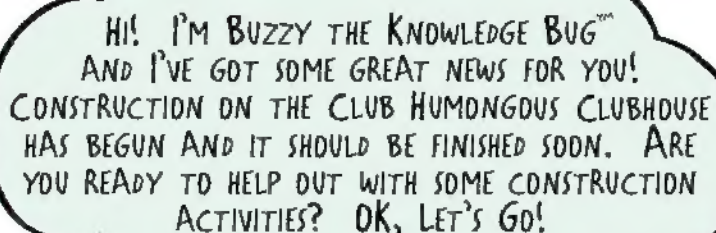 HI! I'M BUZZY THE KNOWLEDGE BUG™
AND I'VE GOT SOME GREAT NEWS FOR YOU!
CONSTRUCTION ON THE CLUB HUMONGOUS CLUBHOUSE
HAS BEGUN AND IT SHOULD BE FINISHED SOON. ARE
YOU READY TO HELP OUT WITH SOME CONSTRUCTION
ACTIVITIES? OK, LET'S GO!